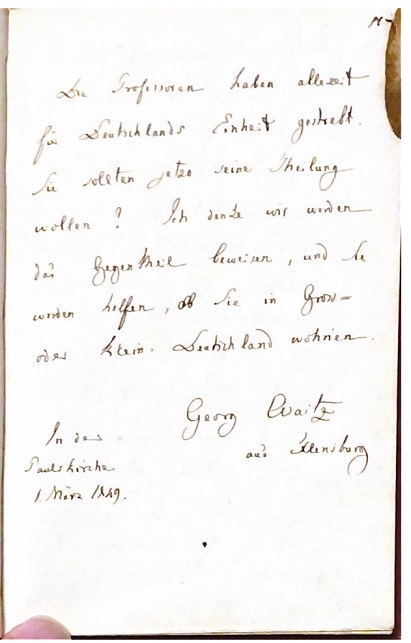 Die Professoren haben allezeit
für Deutschlands Einheit gestrebt.
Sie sollten jetzo seine Theilung
wollen? Ich denke wir werden
das Gegentheil beweisen, und Sie
werden helfen, ob Sie in Gross=
oder Klein-Deutschland wohnen.
Georg Waitz
aus Flensburg
In der
Paulskirche
1. März 1849.